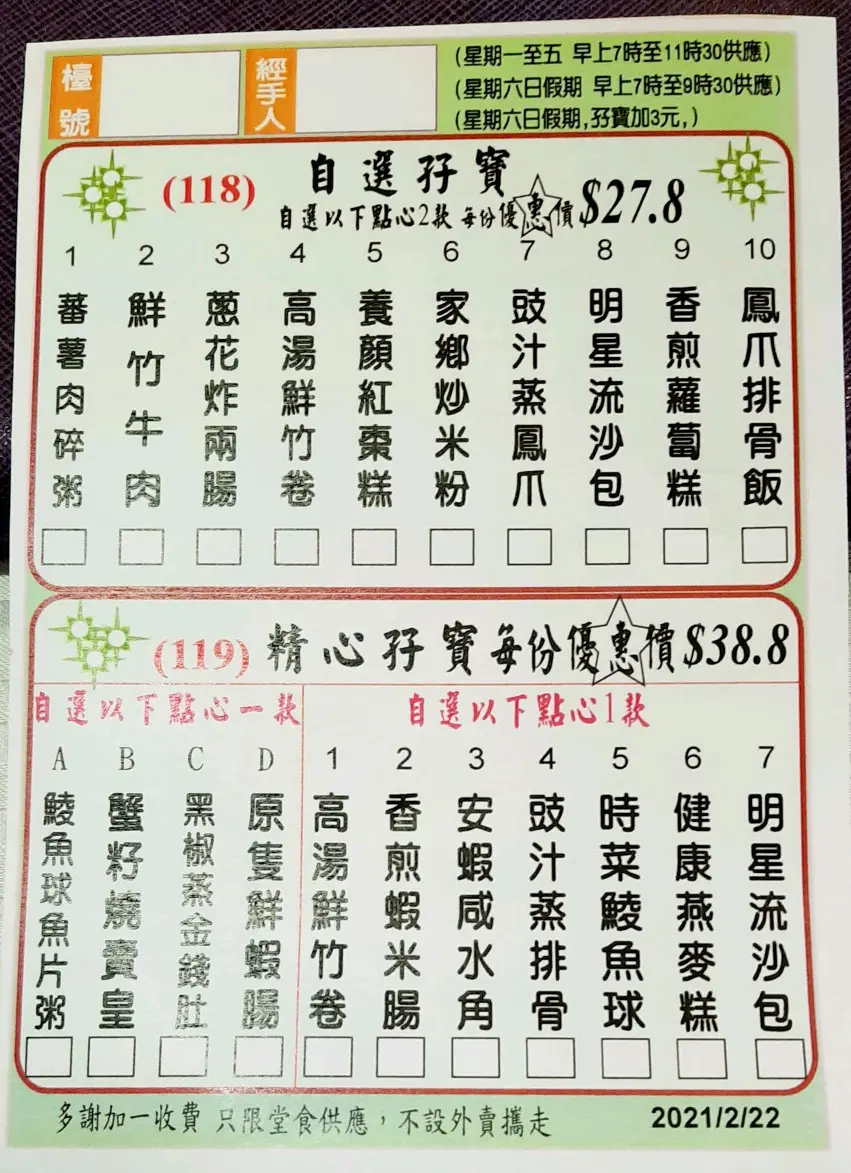 檯號
經手人
(星期一至五 早上7時至11時30供應)
(星期六日假期 早上7時至9時30供應)
(星期六日假期,孖寶加3元,)
(118) 自選孖寶
自選以下點心2款 每份優惠價 $27.8
1 2 3 4 5 6 7 8 9 10
蕃薯肉碎粥
鮮竹牛肉
蔥花炸兩腸
高湯鮮竹卷
養顏紅棗糕
家鄉炒米粉
豉汁蒸鳳爪
明星流沙包
香煎蘿蔔糕
鳳爪排骨飯
(119) 精心孖寶每份優惠價$38.8
自選以下點心一款
A B C D
鯪魚球魚片粥
蟹籽燒賣皇
黑椒蒸金錢肚
原隻鮮蝦腸
自選以下點心1款
1 2 3 4 5 6 7
高湯鮮竹卷
香煎蝦米腸
安蝦咸水角
豉汁蒸排骨
時菜鯪魚球
健康燕麥糕
明星流沙包
多謝加一收費 只限堂食供應，不設外賣攜走
2021/2/22